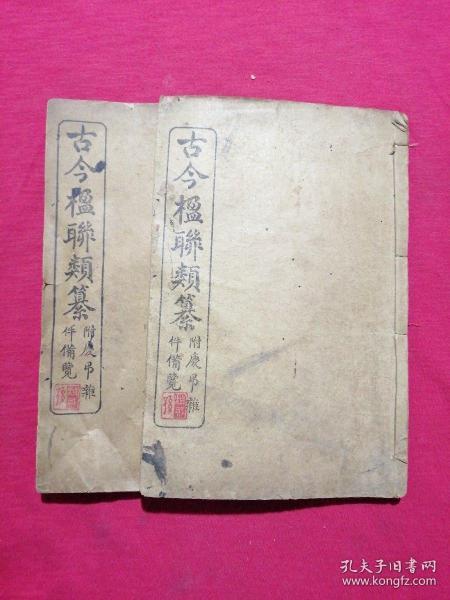 古今楹聯類纂
附慶弔雜
件備覽
古今楹聯類纂
附慶弔雜
件備覽
孔夫子旧书网
www.kongfz.com